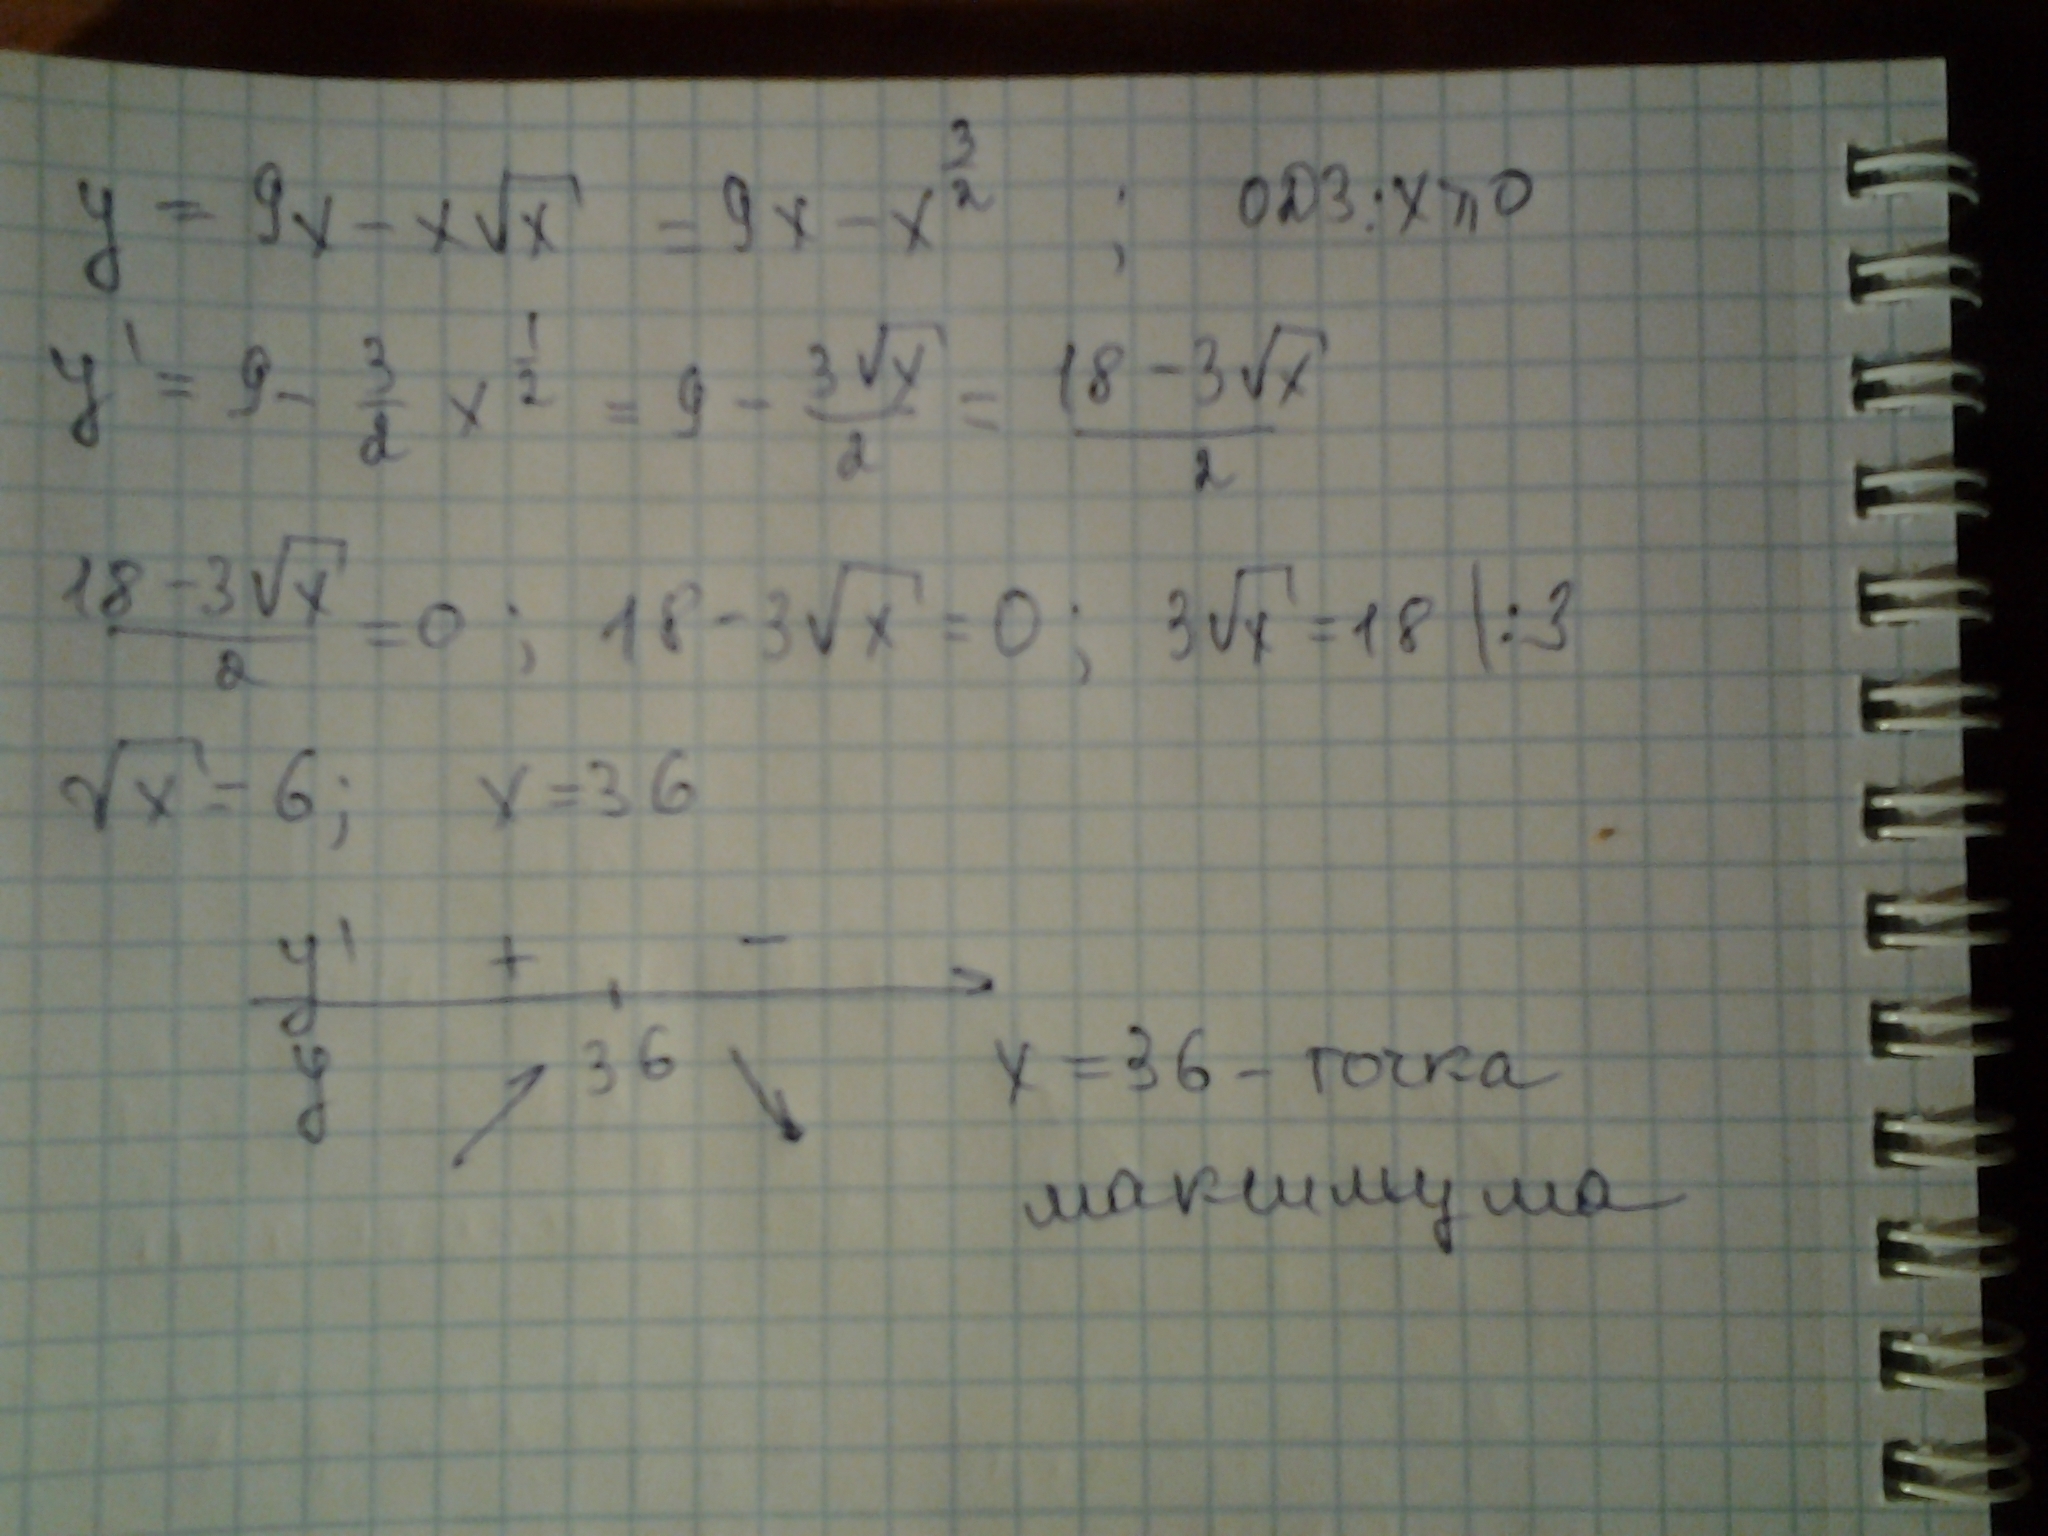 y = 9x - x√x = 9x - x^(3/2) ; ОДЗ: x ⩾ 0
y' = 9 - 3/2 x^(1/2) = 9 - 3√x/2 = (18 - 3√x)/2
(18 - 3√x)/2 = 0 ; 18 - 3√x = 0 ; 3√x = 18 | :3
√x = 6 ; x = 36
y' + -
y 36 x = 36 - точка
максимума